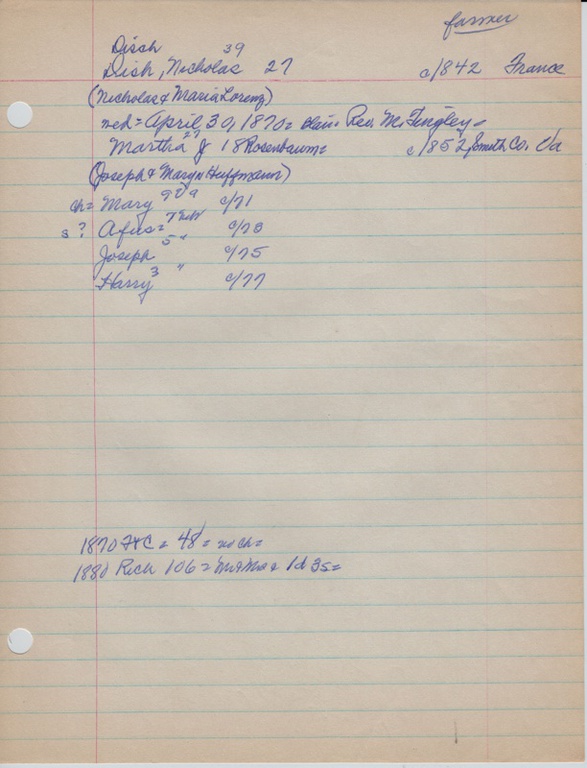 farmer
Dissh 39
Dish, Nicholas 27 c/842 France
(Nicholas & Maria Lorenz)
med = April 30, 1870 = Blair. Rev. M. Tingley =
Martha 27 J 18 Rosenbaum = c/852, Smith Co. Va
(Joseph & Mary Huffmann)
ch = Mary 9 Va c/71
s? Afus = 7 c/73
Joseph 5 " c/75
Harry 3 " c/77
1870 = 48 = no ch =
1880 Rich 106 = 1d 3s =